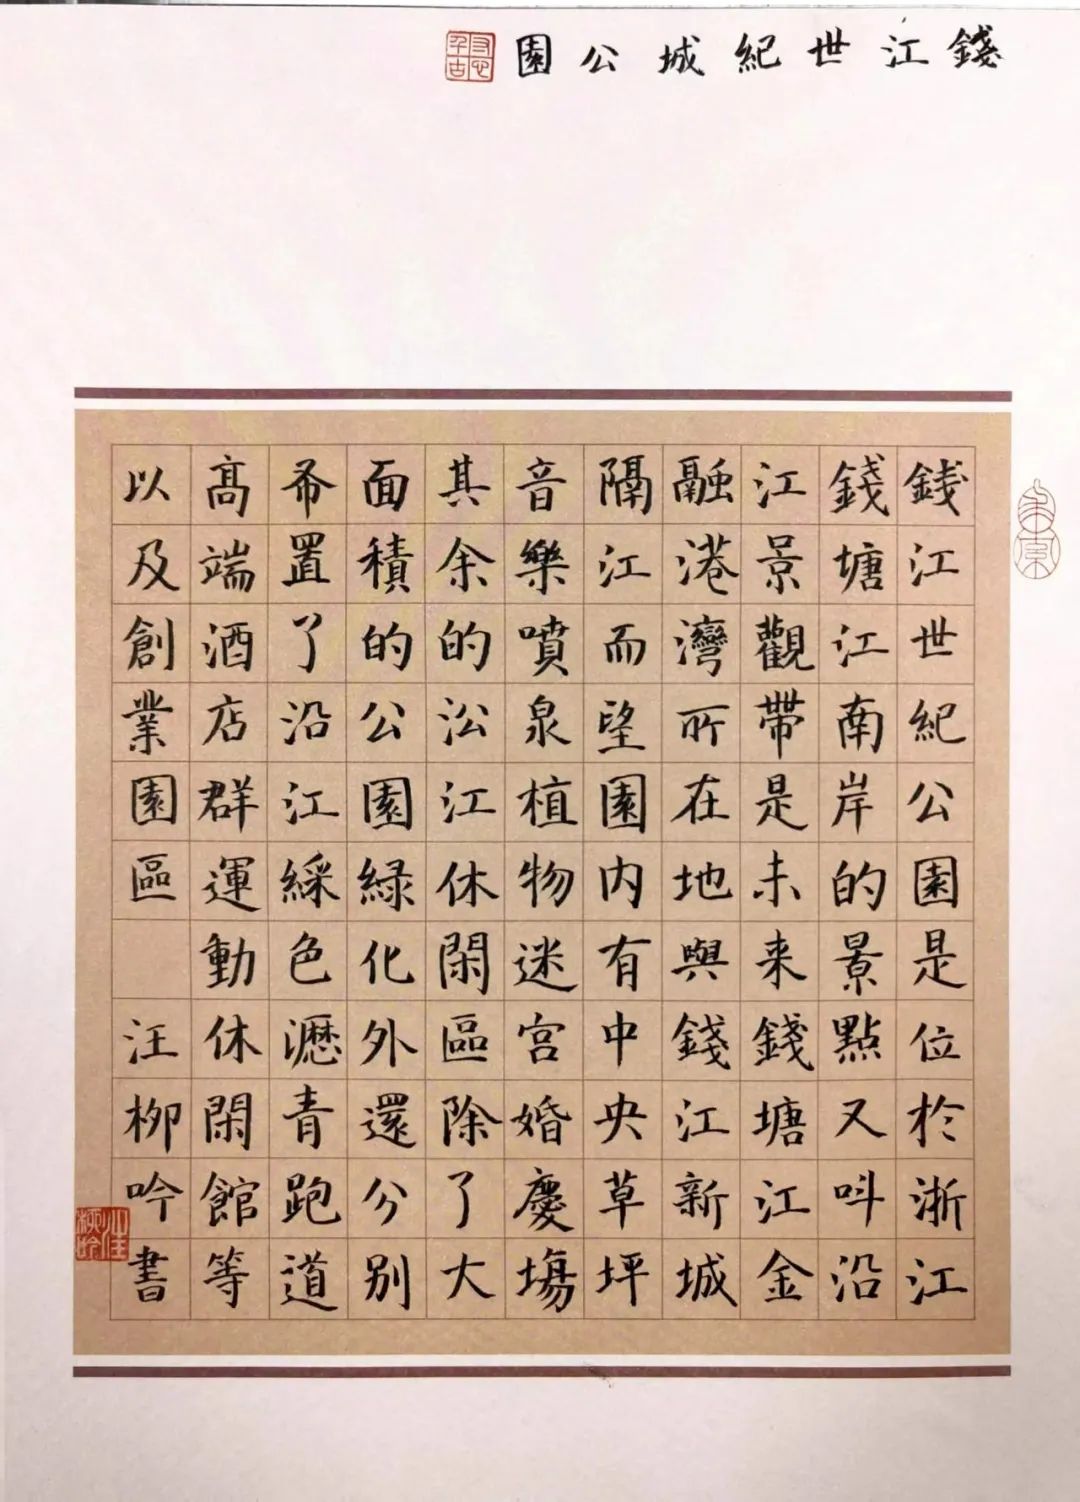 錢江世紀城公園
錢江世紀公園是位於浙江
錢塘江南岸的景點又呌沿
江景觀帶是未来錢塘江金
融港灣所在地與錢江新城
隔江而望園内有中央草坪
音樂噴泉植物迷宮婚慶場
其余的沿江休閑區除了大
面積的公園緑化外還分别
布置了沿江綵色瀝青跑道
高端酒店群運動休閑館等
以及創業園區 汪柳吟書